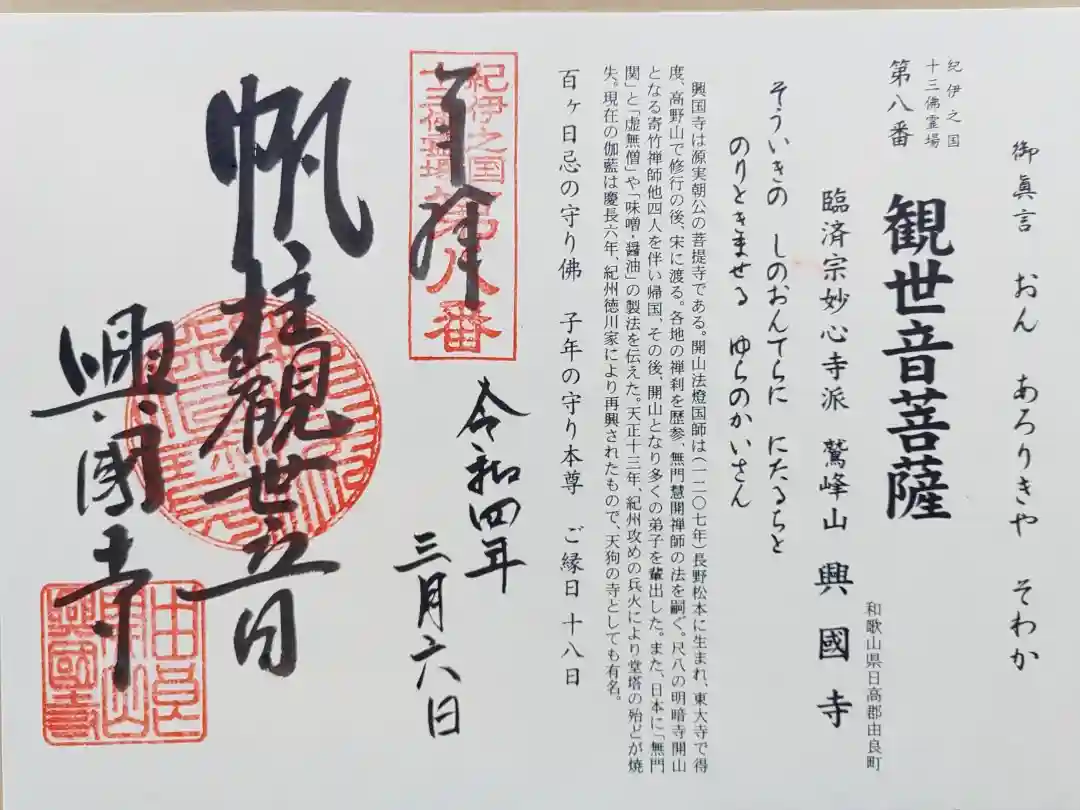 御眞言 おん あろりきや そわか
紀伊之国
十三佛霊場
第八番
観世音菩薩
和歌山県日高郡由良町
臨済宗妙心寺派 鷲峰山 興國寺
そういきの しのおんてらに にたるらと
のりときませる ゆらのかいさん
興国寺は源実朝公の菩提寺である。開山法燈国師は(一二〇七年)長野松本に生まれ、東大寺で得
度、高野山で修行の後、宋に渡る。各地の禅刹を歴参、無門慧開禅師の法を嗣ぐ。尺八の明暗寺開山
となる寄竹禅師他四人を伴い帰国、その後、開山となり多くの弟子を輩出した。また、日本に「無門
関」と「虚無僧」や「味噌・醤油」の製法を伝えた。天正十三年、紀州攻めの兵火により堂塔の殆どが焼
失。現在の伽藍は慶長六年、紀州徳川家により再興されたもので、天狗の寺としても有名。
百ヶ日忌の守り佛 子年の守り本尊 ご縁日 十八日
紀伊之国
十三佛霊場
第八番
奉拝
令和四年
三月六日
帆柱観世音
興國寺
由良
開山
興國寺